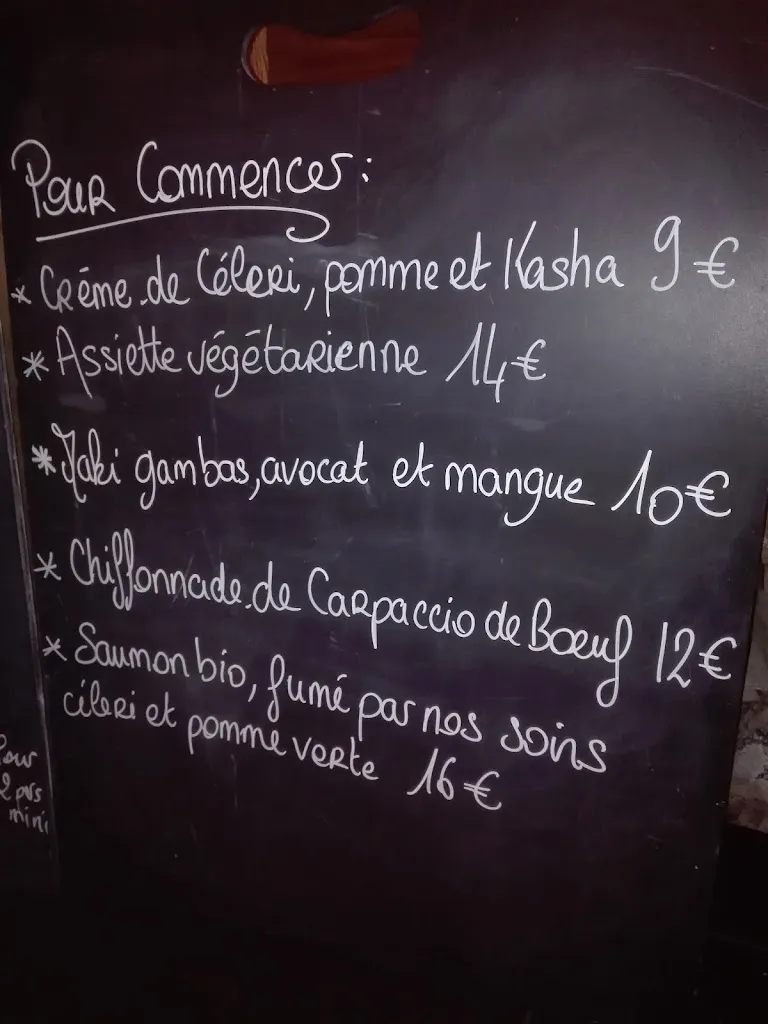 Pour Commencer :
* Crème de Céleri, pomme et Kasha 9 €
* Assiette végétarienne 14 €
* Maki gambas, avocat et mangue 10 €
* Chiffonnade de Carpaccio de Boeuf 12 €
* Saumon bio, fumé par nos soins
céleri et pomme verte 16 €
Pour
2 prs
mini